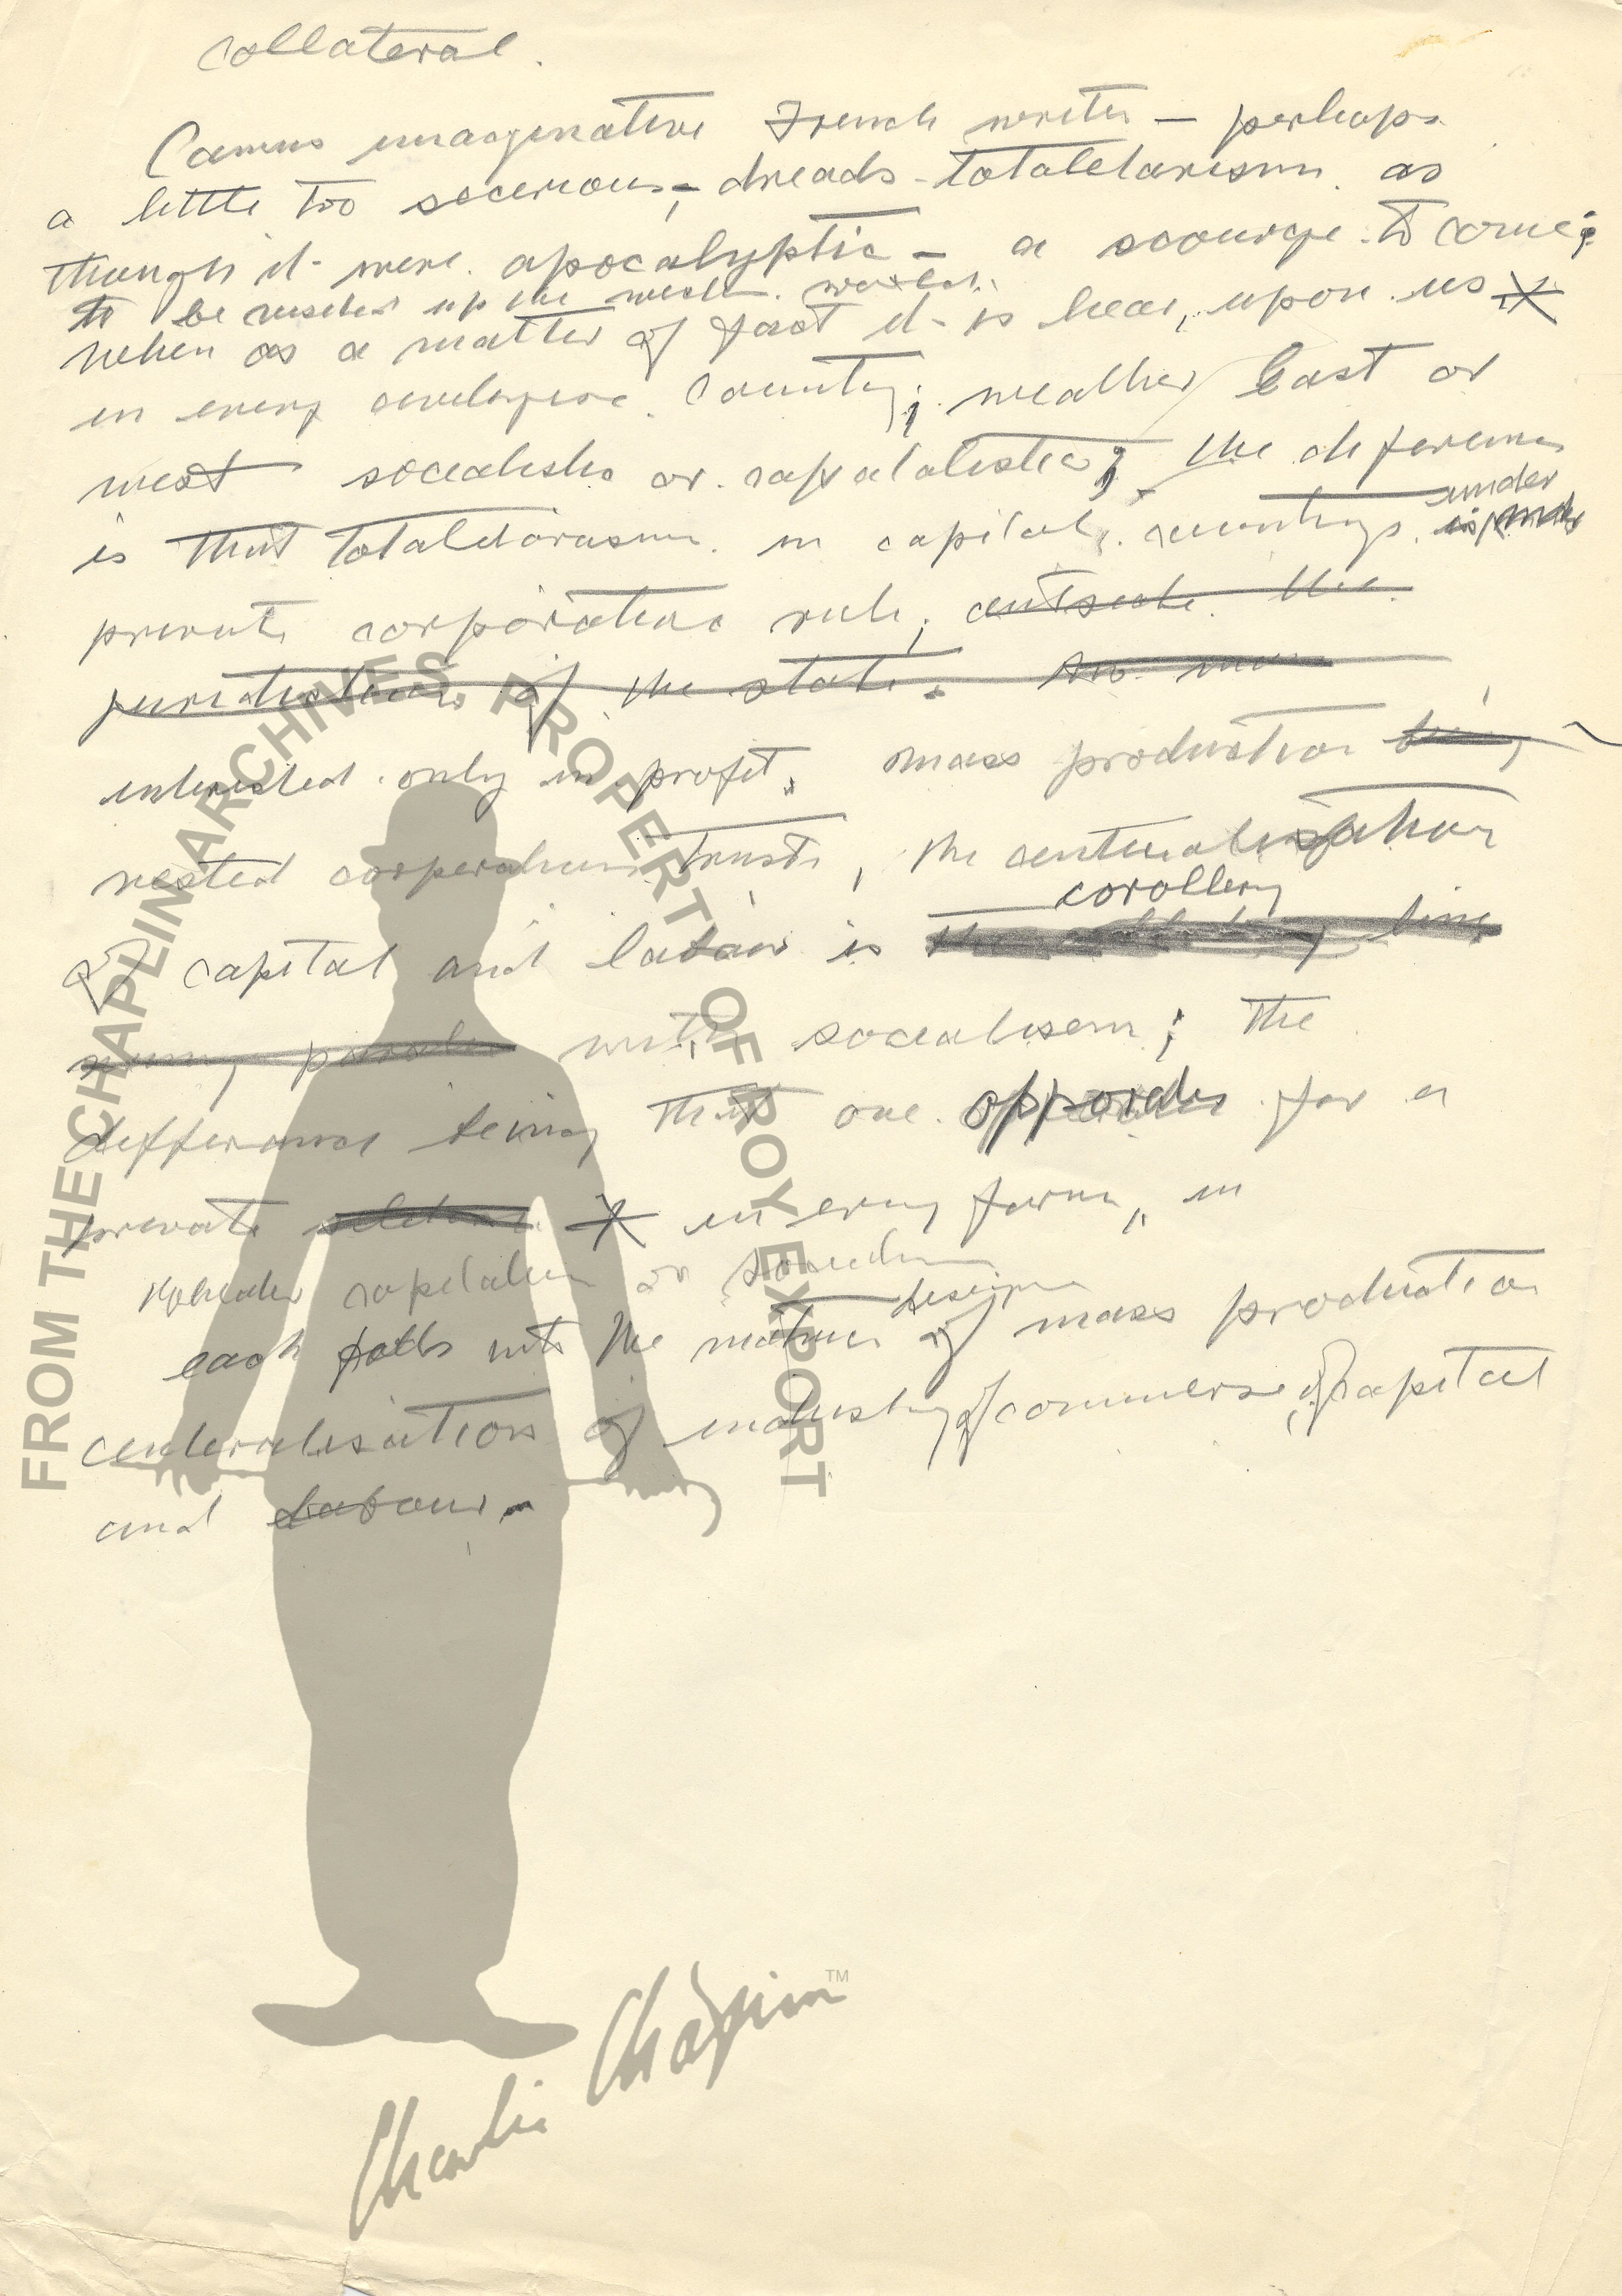 collateral.
Camus imaginative French writer — perhaps
a little too - dreads totaletarism as
though it were apocalyptic — a scourge to come;
to be up the world.
when as a matter of fact it is hear, upon us X
in every country; weather East or
west socealistic or capatalistic; the diference
is that totaletarism in capital. countrys under
private corporations rule; outside the
juridiction of the state.
interested only in profit. mass production being
vested corporations trusts, the centeralization
corollery
of capital and labour is line
with socealism; the
difference being that one for a
private X in every form, in
wheather capitalism or
design
each falls into the nature of mass production
centeralisation of industry of commerse, of capital
and labour.
FROM THE CHAPLIN ARCHIVES. PROPERTY OF ROY EXPORT
Charlie Chaplin™